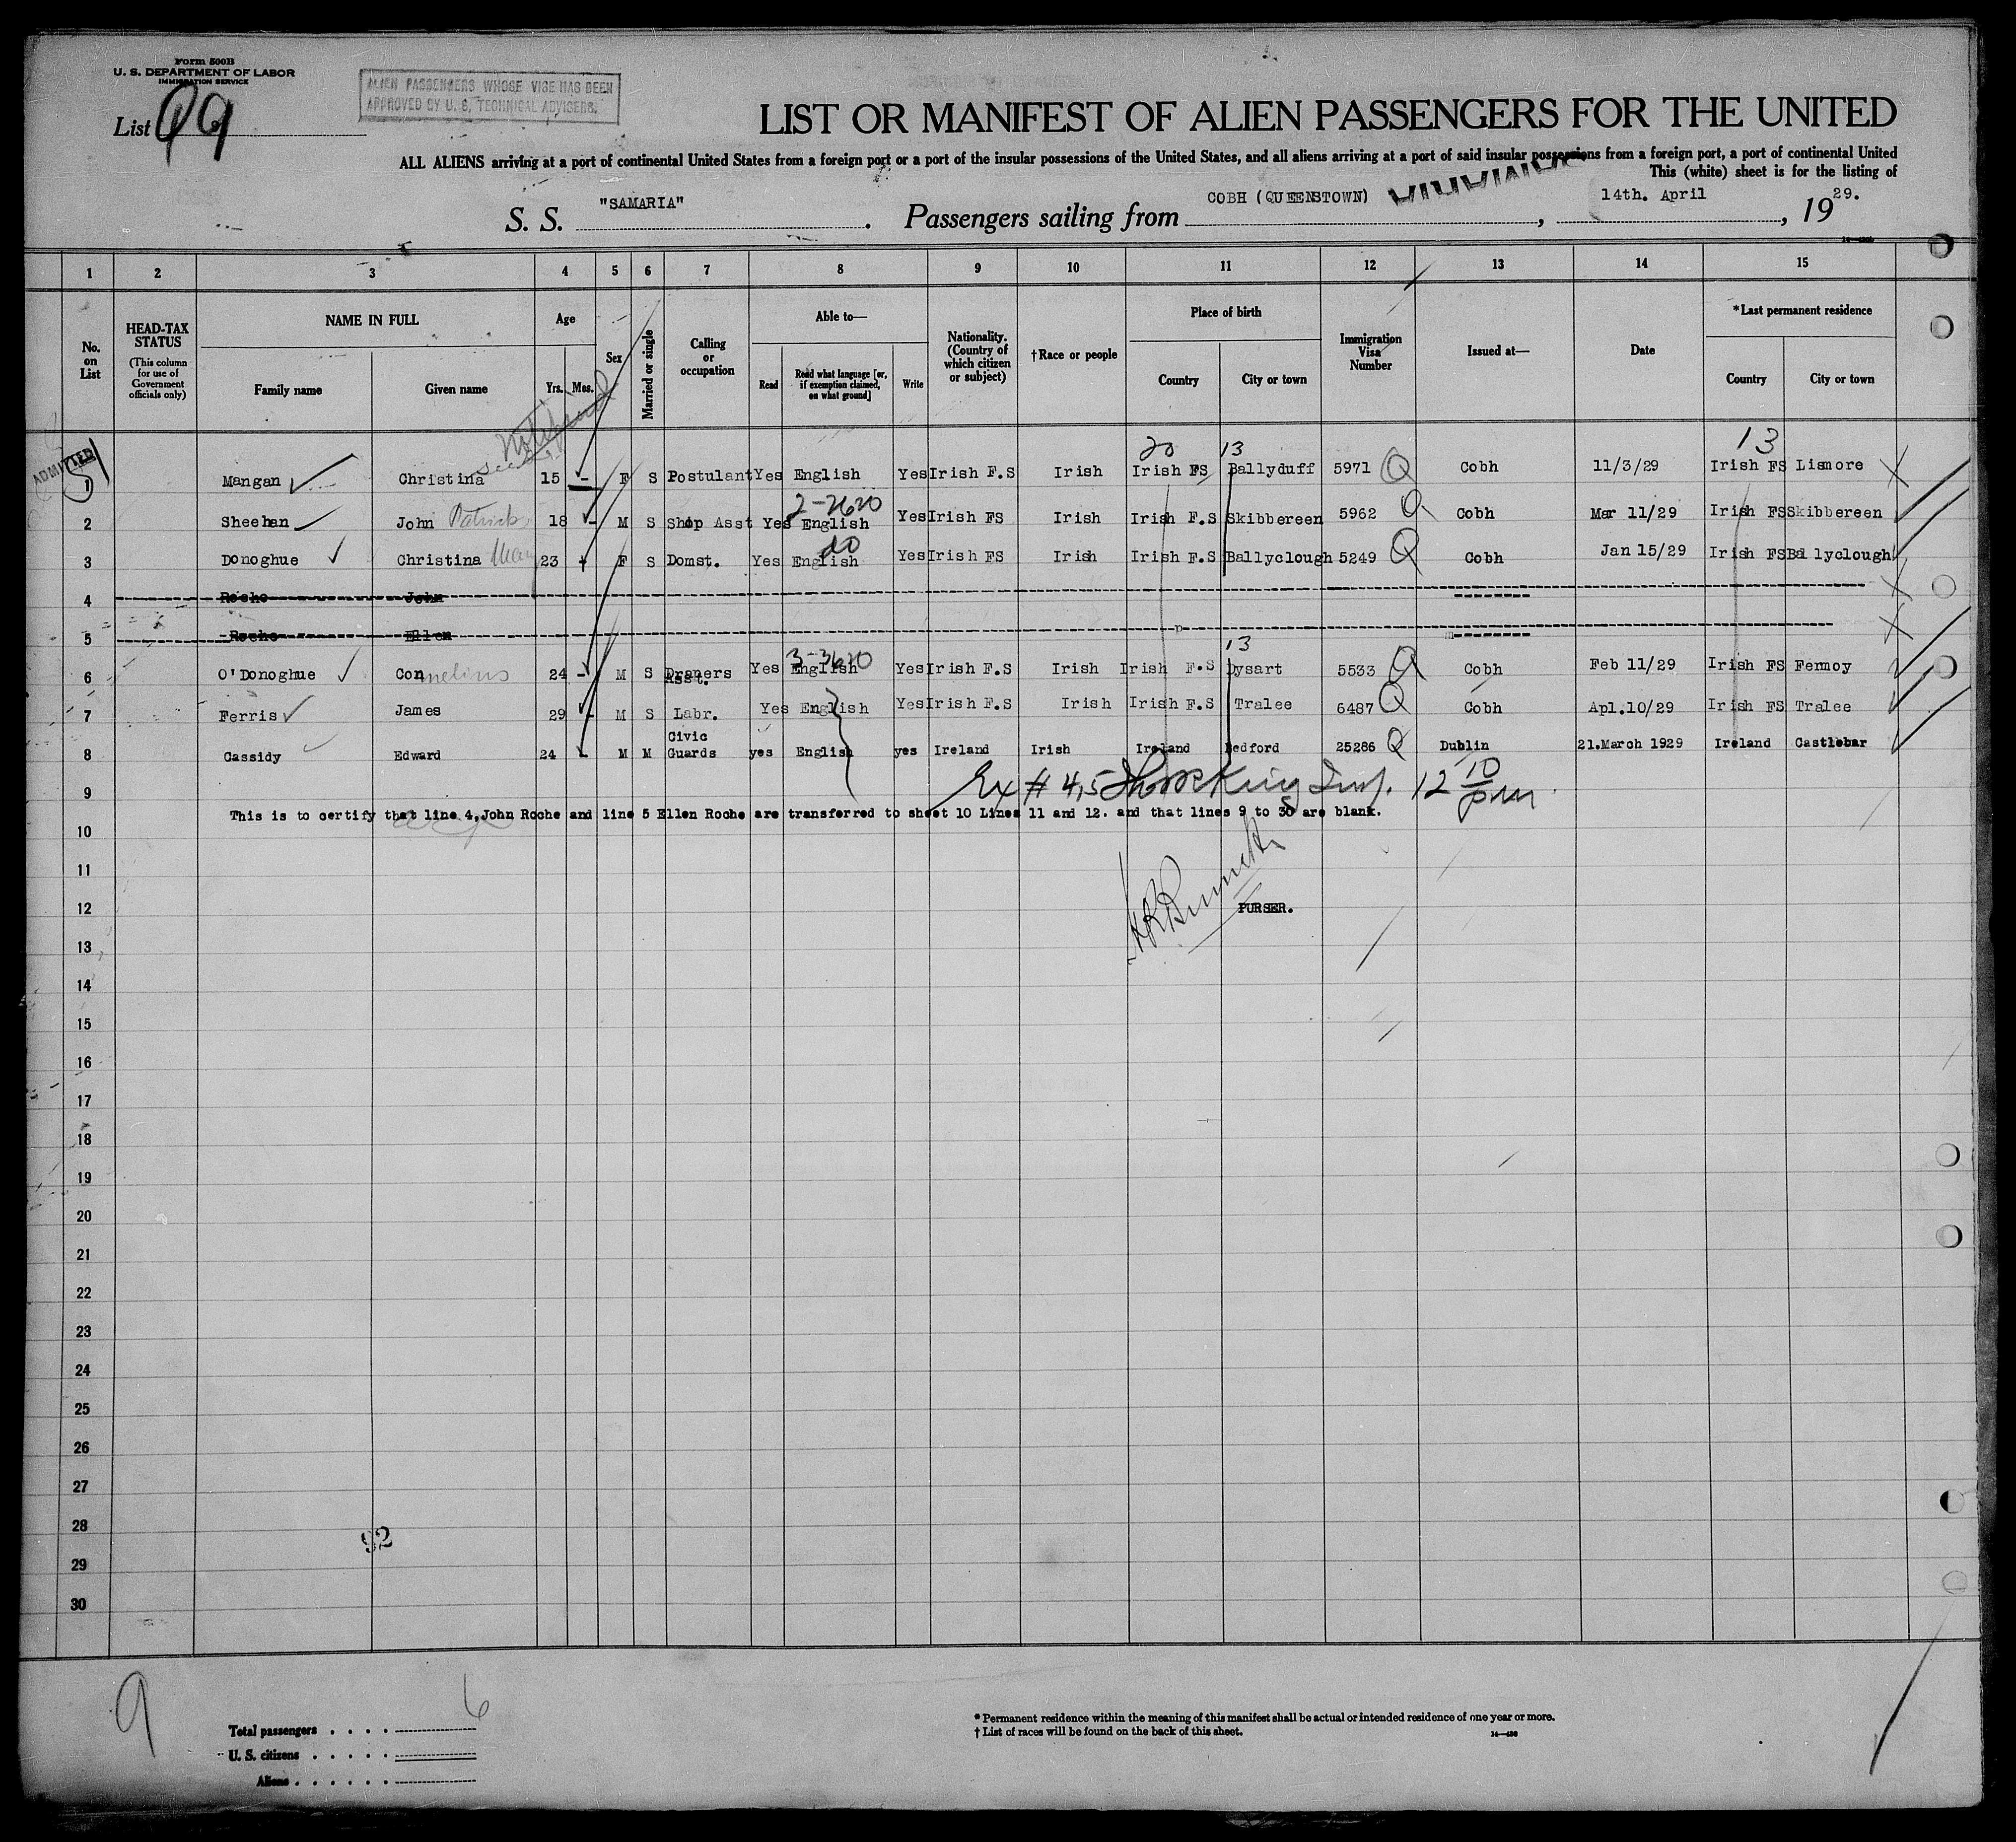 Form 500B
U. S. DEPARTMENT OF LABOR
IMMIGRATION SERVICE
ALIEN PASSENGERS WHOSE VISE HAS BEEN
APPROVED BY U. S. TECHNICAL ADVISERS.
List 9
LIST OR MANIFEST OF ALIEN PASSENGERS FOR THE UNITED
ALL ALIENS arriving at a port of continental United States from a foreign port or a port of the insular possessions of the United States, and all aliens arriving at a port of said insular possessions from a foreign port, a port of continental United
This (white) sheet is for the listing of
S. S. "SAMARIA". Passengers sailing from COBH (QUEENSTOWN), 14th. April, 1929.
1 2 3 4 5 6 7 8 9 10 11 12 13 14 15
No. on List
HEAD-TAX STATUS (This column for use of Government officials only)
NAME IN FULL Family name Given name
Age Yrs. Mos.
Sex
Married or single
Calling or occupation
Able to— Read Read what language [or, if exemption claimed, on what ground] Write
Nationality. (Country of which citizen or subject)
†Race or people
Place of birth Country City or town
Immigration Visa Number
Issued at—
Date
*Last permanent residence Country City or town
ADMITTED
20 13 13
1 Mangan Christina 15 - F S Postulant Yes English Yes Irish F.S Irish Irish FS Ballyduff 5971 Cobh 11/3/29 Irish FS Lismore
2-2620
2 Sheehan John Patrick 18 - M S Shop Asst Yes English Yes Irish FS Irish Irish F.S Skibbereen 5962 Cobh Mar 11/29 Irish FS Skibbereen
3 Donoghue Christina Mary 23 - F S Domst. Yes English Yes Irish FS Irish Irish F.S Ballyclough 5249 Cobh Jan 15/29 Irish FS Ballyclough
4 Roche John
5 Roche Ellen
3-3620 13
6 O'Donoghue Cornelius 24 - M S Drapers Asst. Yes English Yes Irish F.S Irish Irish F.S Dysart 5533 Cobh Feb 11/29 Irish FS Fermoy
7 Ferris James 29 - M S Labr. Yes English Yes Irish F.S Irish Irish F.S Tralee 6487 Cobh Apl.10/29 Irish FS Tralee
8 Cassidy Edward 24 - M M Civic Guards yes English yes Ireland Irish Ireland Bedford 25286 Dublin 21.March 1929 Ireland Castlebar
9 Ex # 4,5 King Insp. 12 10 pm
This is to certify that line 4,John Roche and line 5 Ellen Roche are transferred to sheet 10 Lines 11 and 12. and that lines 9 to 30 are blank.
10
11
12 PURSER.
13
14
15
16
17
18
19
20
21
22
23
24
25
26
27
28
92
29
30
9
6
Total passengers
U. S. citizens
Aliens
* Permanent residence within the meaning of this manifest shall be actual or intended residence of one year or more.
† List of races will be found on the back of this sheet.